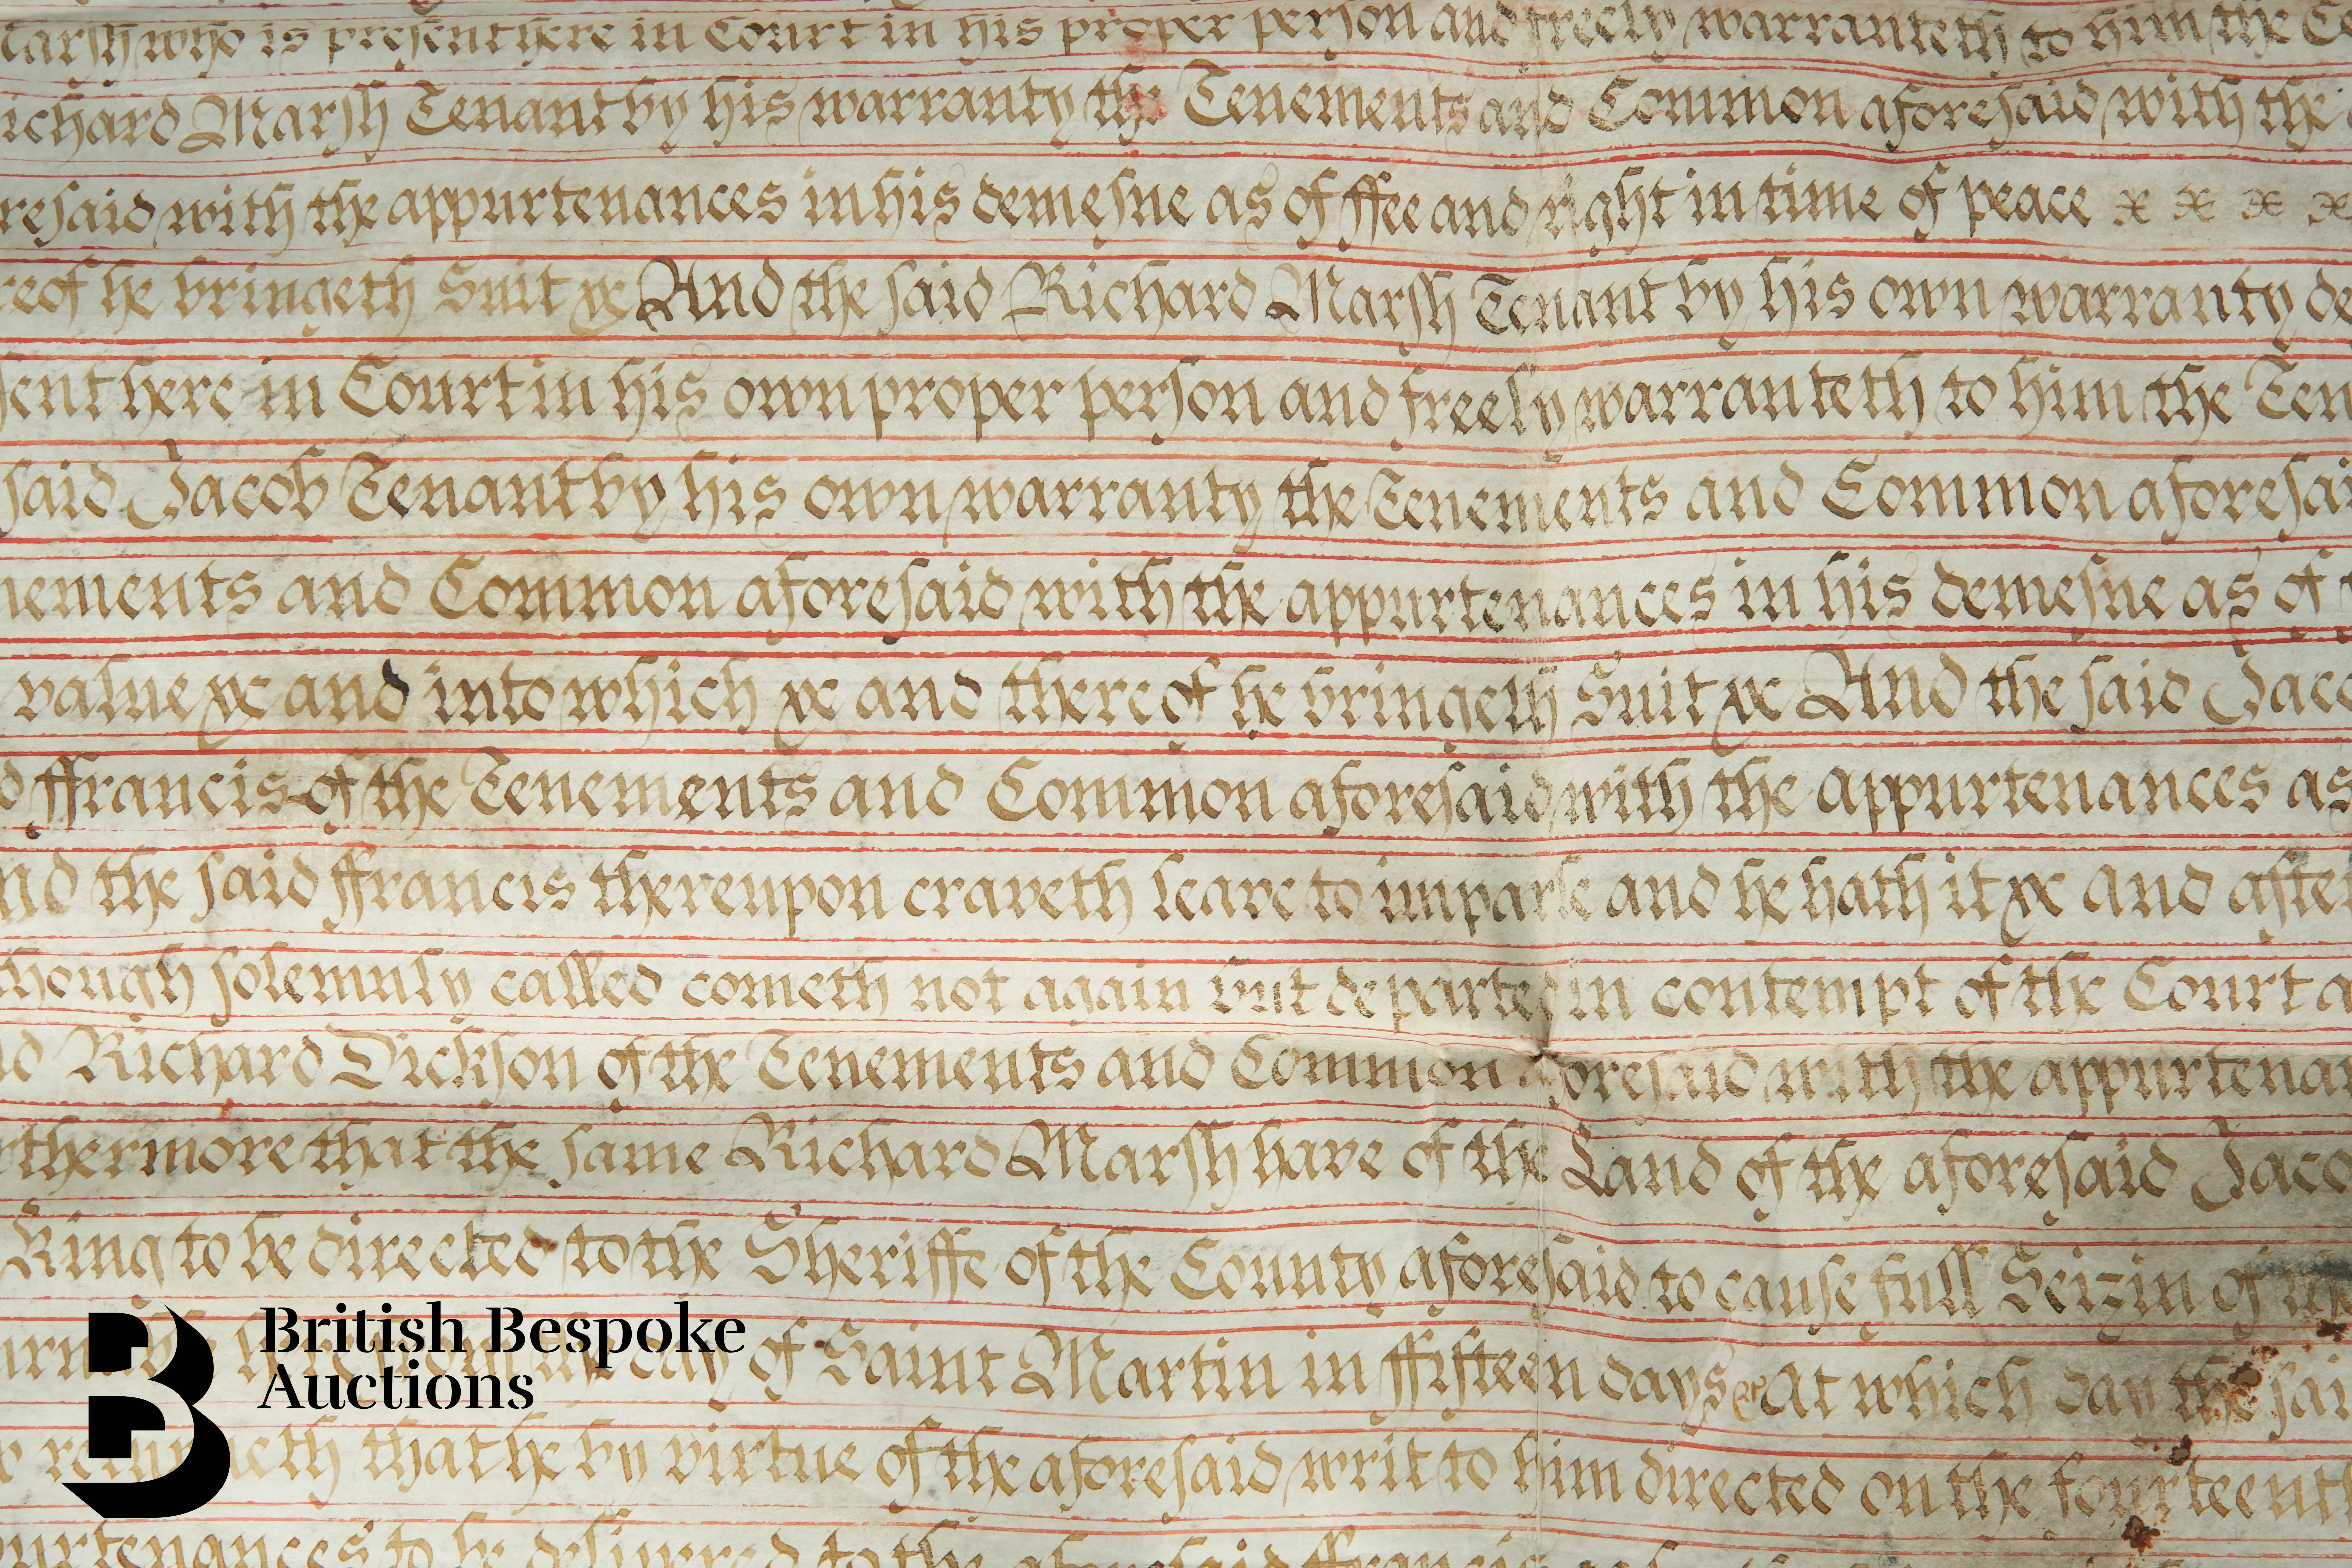 arsh who is present here in Court in his proper person and freely warranteth to him the
ichard Marsh Tenant by his warranty the Tenements and Common aforesaid with the
resaid with the appurtenances in his demesne as of ffee and right in time of peace x x x x
reof he bringeth Suit &c And the said Richard Marsh Tenant by his own warranty de
sent here in Court in his own proper person and freely warranteth to him the Ten
said Jacob Tenant by his own warranty the Tenements and Common aforesai
nements and Common aforesaid with the appurtenances in his demesne as of
value &c and into which &c and thereof he bringeth Suit &c And the said Jaco
d ffrancis of the Tenements and Common aforesaid with the appurtenances as
nd the said ffrancis thereupon craveth leave to imparle and he hath it &c and after
though solemnly called cometh not again but departed in contempt of the Court a
id Richard Dickson of the Tenements and Common aforesaid with the appurtenan
rthermore that the same Richard Marsh have of the Land of the aforesaid Jaco
King to be directed to the Sheriffe of the County aforesaid to cause full Seizin of
day of Saint Martin in ffifteen days &c At which day the sai
returneth that he by virtue of the aforesaid writ to him directed on the fourteenth
purtenances to be delivered to the aforesaid ffrancis
British Bespoke
Auctions